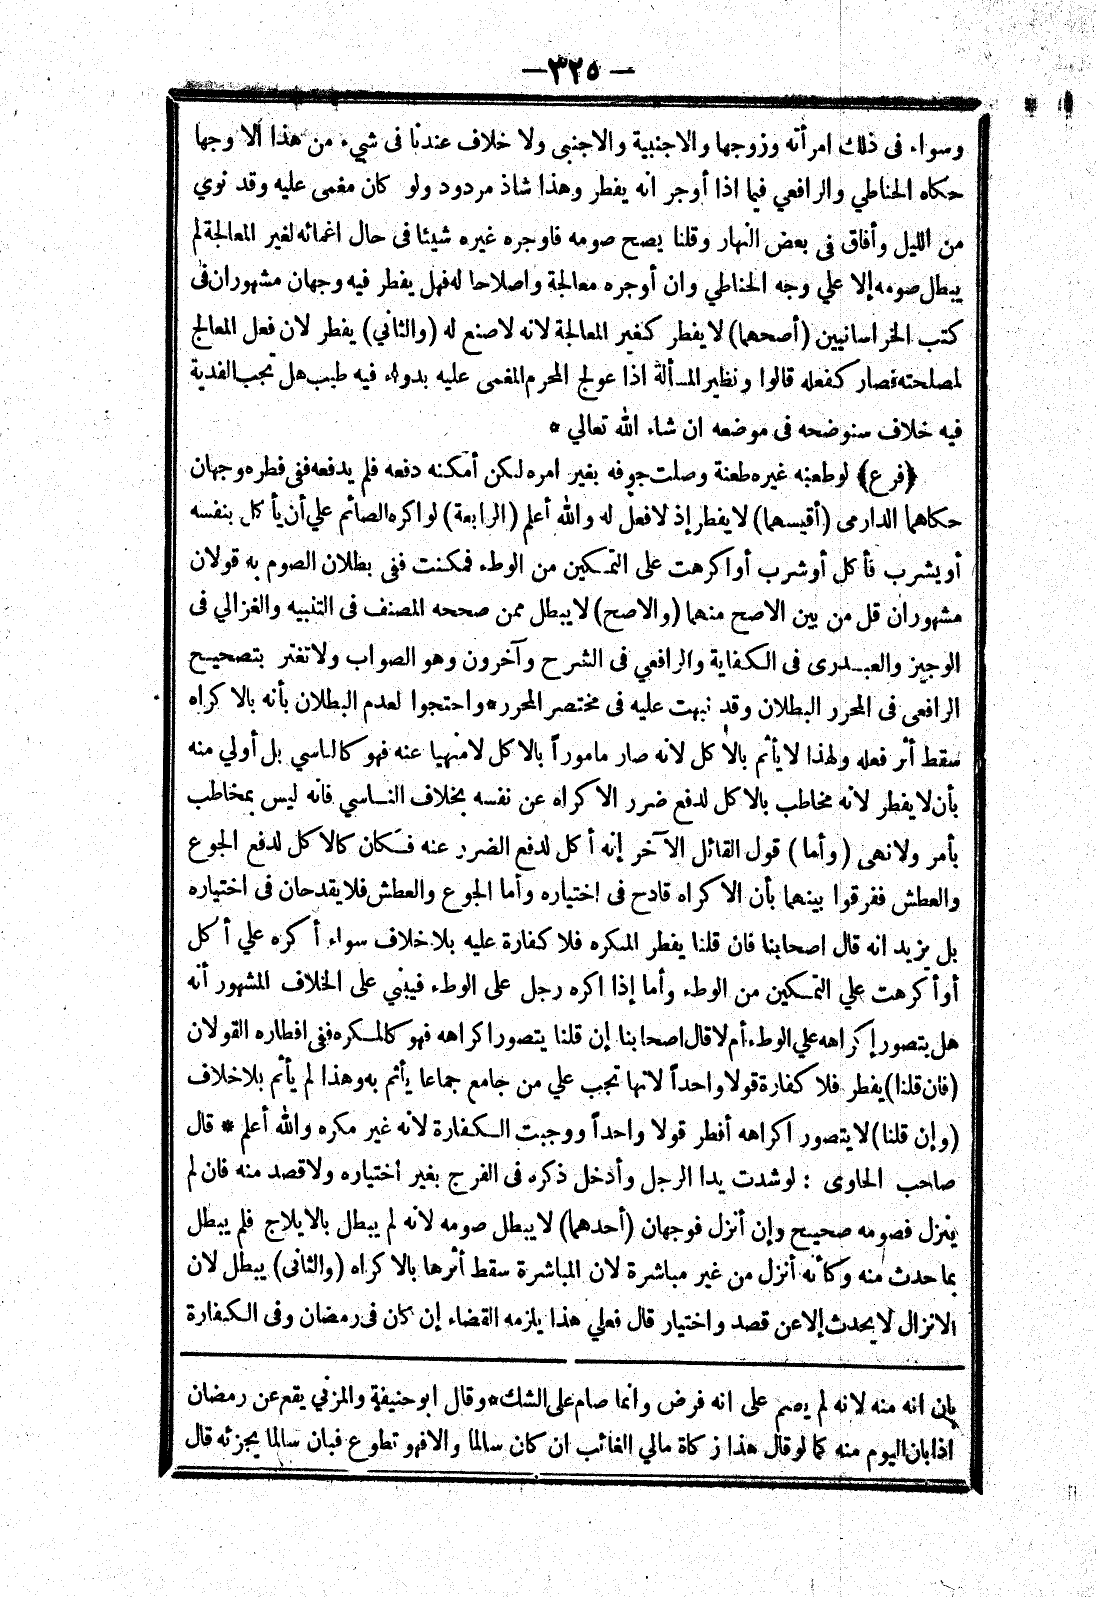 — ٣٢٥ —
وسواء فى ذلك امرأته وزوجها والاجنبية والاجنبى ولا خلاف عندنا فى شيء من هذا الا وجها
حكاه الحناطي والرافعي فيما اذا أوجر انه يفطر وهذا شاذ مردود ولو كان مغمى عليه وقد نوي
من الليل وأفاق في بعض النهار وقلنا يصح صومه فاوجره غيره شيئا فى حال اغمائه لغير المعالجة لم
يبطل صومه إلا علي وجه الحناطي وان أوجره معالجة واصلاحا له فهل يفطر فيه وجهان مشهوران فى
كتب الخراسانيين (أصحهما) لا يفطر كغير المعالجة لانه لا صنع له (والثاني) يفطر لان فعل المعالج
لمصلحته فصار كفعله قالوا ونظير المسألة اذا عولج المحرم المغمى عليه بدواء فيه طيب هل تجب الفدية
فيه خلاف سنوضحه فى موضعه ان شاء الله تعالي *
﴿فرع﴾ لو طعنه غيره طعنة وصلت جوفه بغير امره لكن أمكنه دفعه فلم يدفعه ففى فطره وجهان
حكاهما الدارمى (أقيسهما) لا يفطر إذ لا فعل له والله أعلم (الرابعة) لو اكره الصائم علي أن يأكل بنفسه
أو يشرب فأكل أو شرب أو اكرهت على التمكين من الوطء فمكنت ففى بطلان الصوم به قولان
مشهوران قل من بين الاصح منهما (والاصح) لا يبطل ممن صححه المصنف فى التنبيه والغزالي فى
الوجيز والعبـدرى فى الكفاية والرافعي فى الشرح وآخرون وهو الصواب ولا تغتر بتصحيح
الرافعى فى المحرر البطلان وقد نبهت عليه فى مختصر المحرر * واحتجوا لعدم البطلان بأنه بالاكراه
سقط أثر فعله ولهذا لا يأثم بالأكل لانه صار ماموراً بالاكل لا منهيا عنه فهو كالناسي بل أولي منه
بأن لا يفطر لانه مخاطب بالاكل لدفع ضرر الاكراه عن نفسه بخلاف النـاسي فانه ليس بمخاطب
بأمر ولا نهى (وأما) قول القائل الآخر إنه أكل لدفع الضرر عنه فـكان كالاكل لدفع الجوع
والعطش ففرقوا بينهما بأن الاكراه قادح فى اختياره وأما الجوع والعطش فلا يقدحان فى اختياره
بل يزيد انه قال اصحابنا فان قلنا يفطر المكره فلا كفارة عليه بلا خلاف سواء أكره علي أكل
أو أكرهت علي التمـكين من الوطء وأما إذا اكره رجل على الوطء فيبني على الخلاف المشهور أنه
هل يتصور إكراهه علي الوطء أم لا قال اصحابنا إن قلنا يتصور اكراهه فهو كالمـكره ففى افطاره القولان
(فان قلنا) يفطر فلا كفارة قولا واحداً لانها تجب علي من جامع جماعا يأثم به وهذا لم يأثم بلا خلاف
(وإن قلنا) لا يتصور اكراهه أفطر قولا واحداً ووجبت الـكفارة لانه غير مكره والله أعلم * قال
صاحب الحاوى : لو شدت يدا الرجل وأدخل ذكره فى الفرج بغير اختياره ولا قصد منه فان لم
ينزل فصومه صحيح وإن أنزل فوجهان (أحدهما) لا يبطل صومه لانه لم يبطل بالايلاج فلم يبطل
بما حدث منه وكأنه أنزل من غير مباشرة لان المباشرة سقط أثرها بالاكراه (والثانى) يبطل لان
الانزال لا يحدث إلا عن قصد واختيار قال فعلي هذا يلزمه القضاء إن كان فى رمضان وفى الـكفارة
بان انه منه لانه لم يصم على انه فرض وانما صام على الشك * وقال ابو حنيفة والمزني يقع عن رمضان
اذا بان اليوم منه كما لو قال هذا زكاة مالي الغائب ان كان سالما والا فهو تطوع فبان سالما يجزئه قال